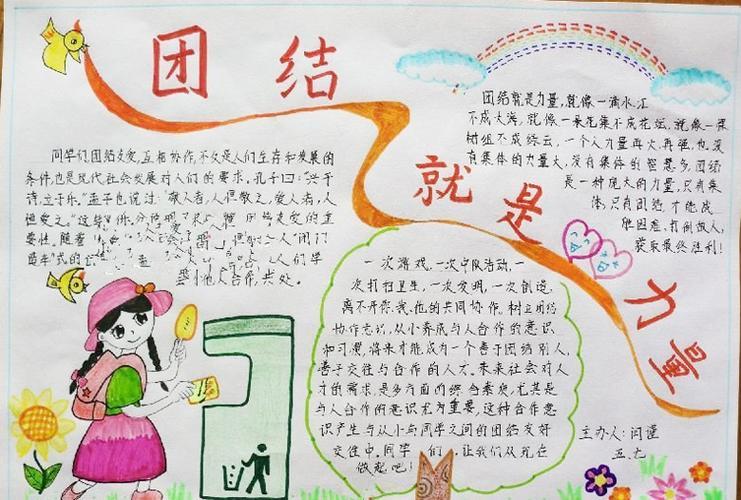 团结
就是
力量
同学们团结友爱,互相协作,不仅是人们生存和发展的
条件,也是现代社会发展对人们的要求。孔子曰:“兴于
诗,立于乐。”孟子也说过:“敬人者,人恒敬之,爱人者,人
恒爱之。”
要性。随着
与他人合作,共处。
团结就是力量,就像一滴水汇
不成大海,就像一朵花集不成花坛,就像一棵
树组不成绿云,一个人力量再大,再强,也没
有集体的力量大,没有集体的智慧多,团结
是一种庞大的力量,只有集
体,只有团结,才能战
胜困难,打倒敌人,
获取最终胜利!
一次游戏,一次中队活动,一
次打扫卫生,一次发明,一次创造,
离不开你、我、他的共同协作。树立团结
协作意识,从小养成与人合作的意识
和习惯,将来才能成为一个善于团结别人,
善于交往与合作的人才。未来社会对人
才的需求,是多方面的综合素质,尤其是
与人合作的意识尤为重要,这种合作意
识产生与从小与同学之间的团结友好
交往中。同学们,让我们从现在
做起吧!
主办人:闫谨
五、